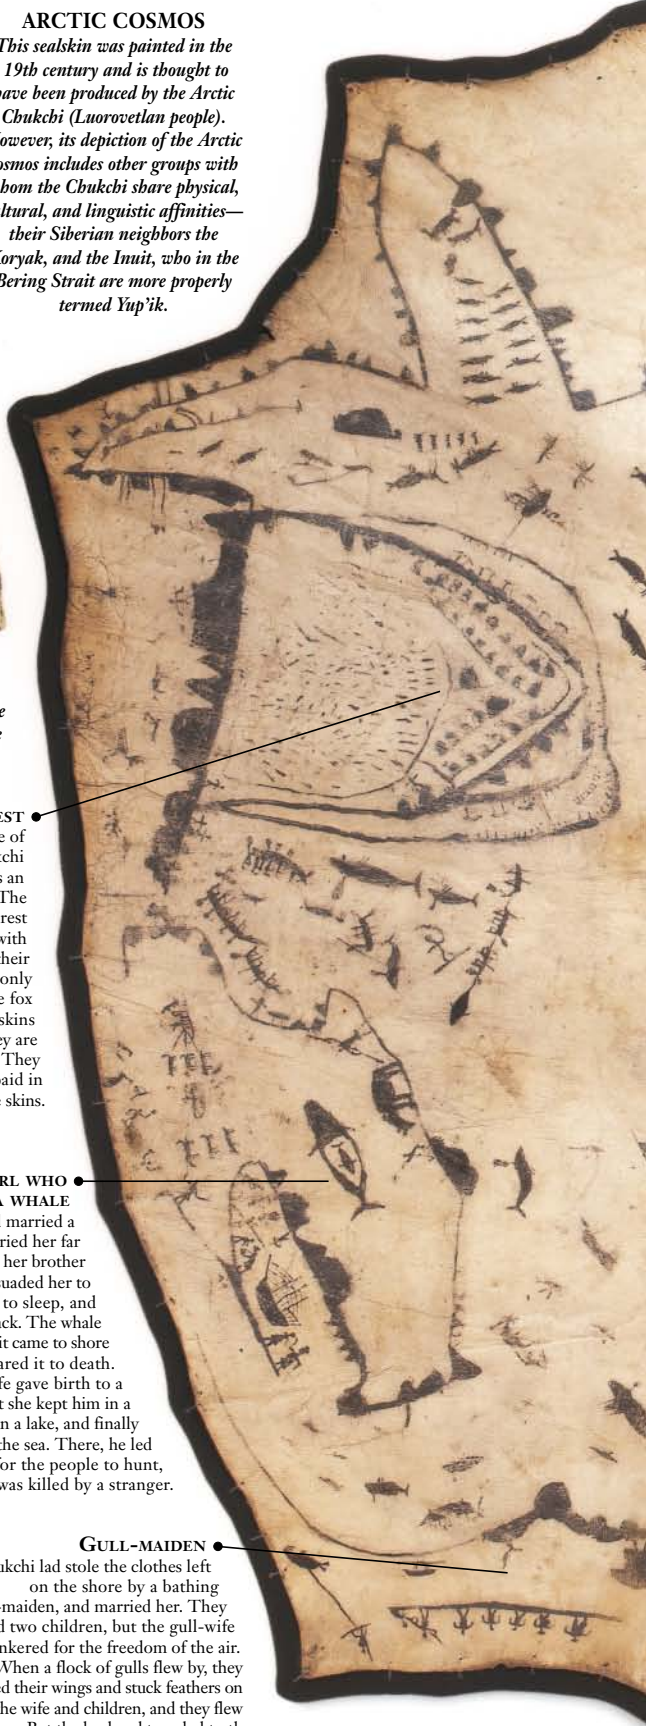 ARCTIC COSMOS
This sealskin was painted in the
19th century and is thought to
have been produced by the Arctic
Chukchi (Luorovetlan people).
owever, its depiction of the Arctic
osmos includes other groups with
hom the Chukchi share physical,
ltural, and linguistic affinities—
their Siberian neighbors the
oryak, and the Inuit, who in the
Bering Strait are more properly
termed Yup’ik.
e
EST
e of
kchi
s an
The
rest
with
their
only
e fox
skins
ey are
They
paid in
e skins.
RL WHO
A WHALE
married a
ried her far
her brother
suaded her to
to sleep, and
ck. The whale
it came to shore
ared it to death.
fe gave birth to a
t she kept him in a
n a lake, and finally
the sea. There, he led
for the people to hunt,
was killed by a stranger.
GULL-MAIDEN
ukchi lad stole the clothes left
on the shore by a bathing
-maiden, and married her. They
d two children, but the gull-wife
nkered for the freedom of the air.
When a flock of gulls flew by, they
ed their wings and stuck feathers on
he wife and children, and they flew